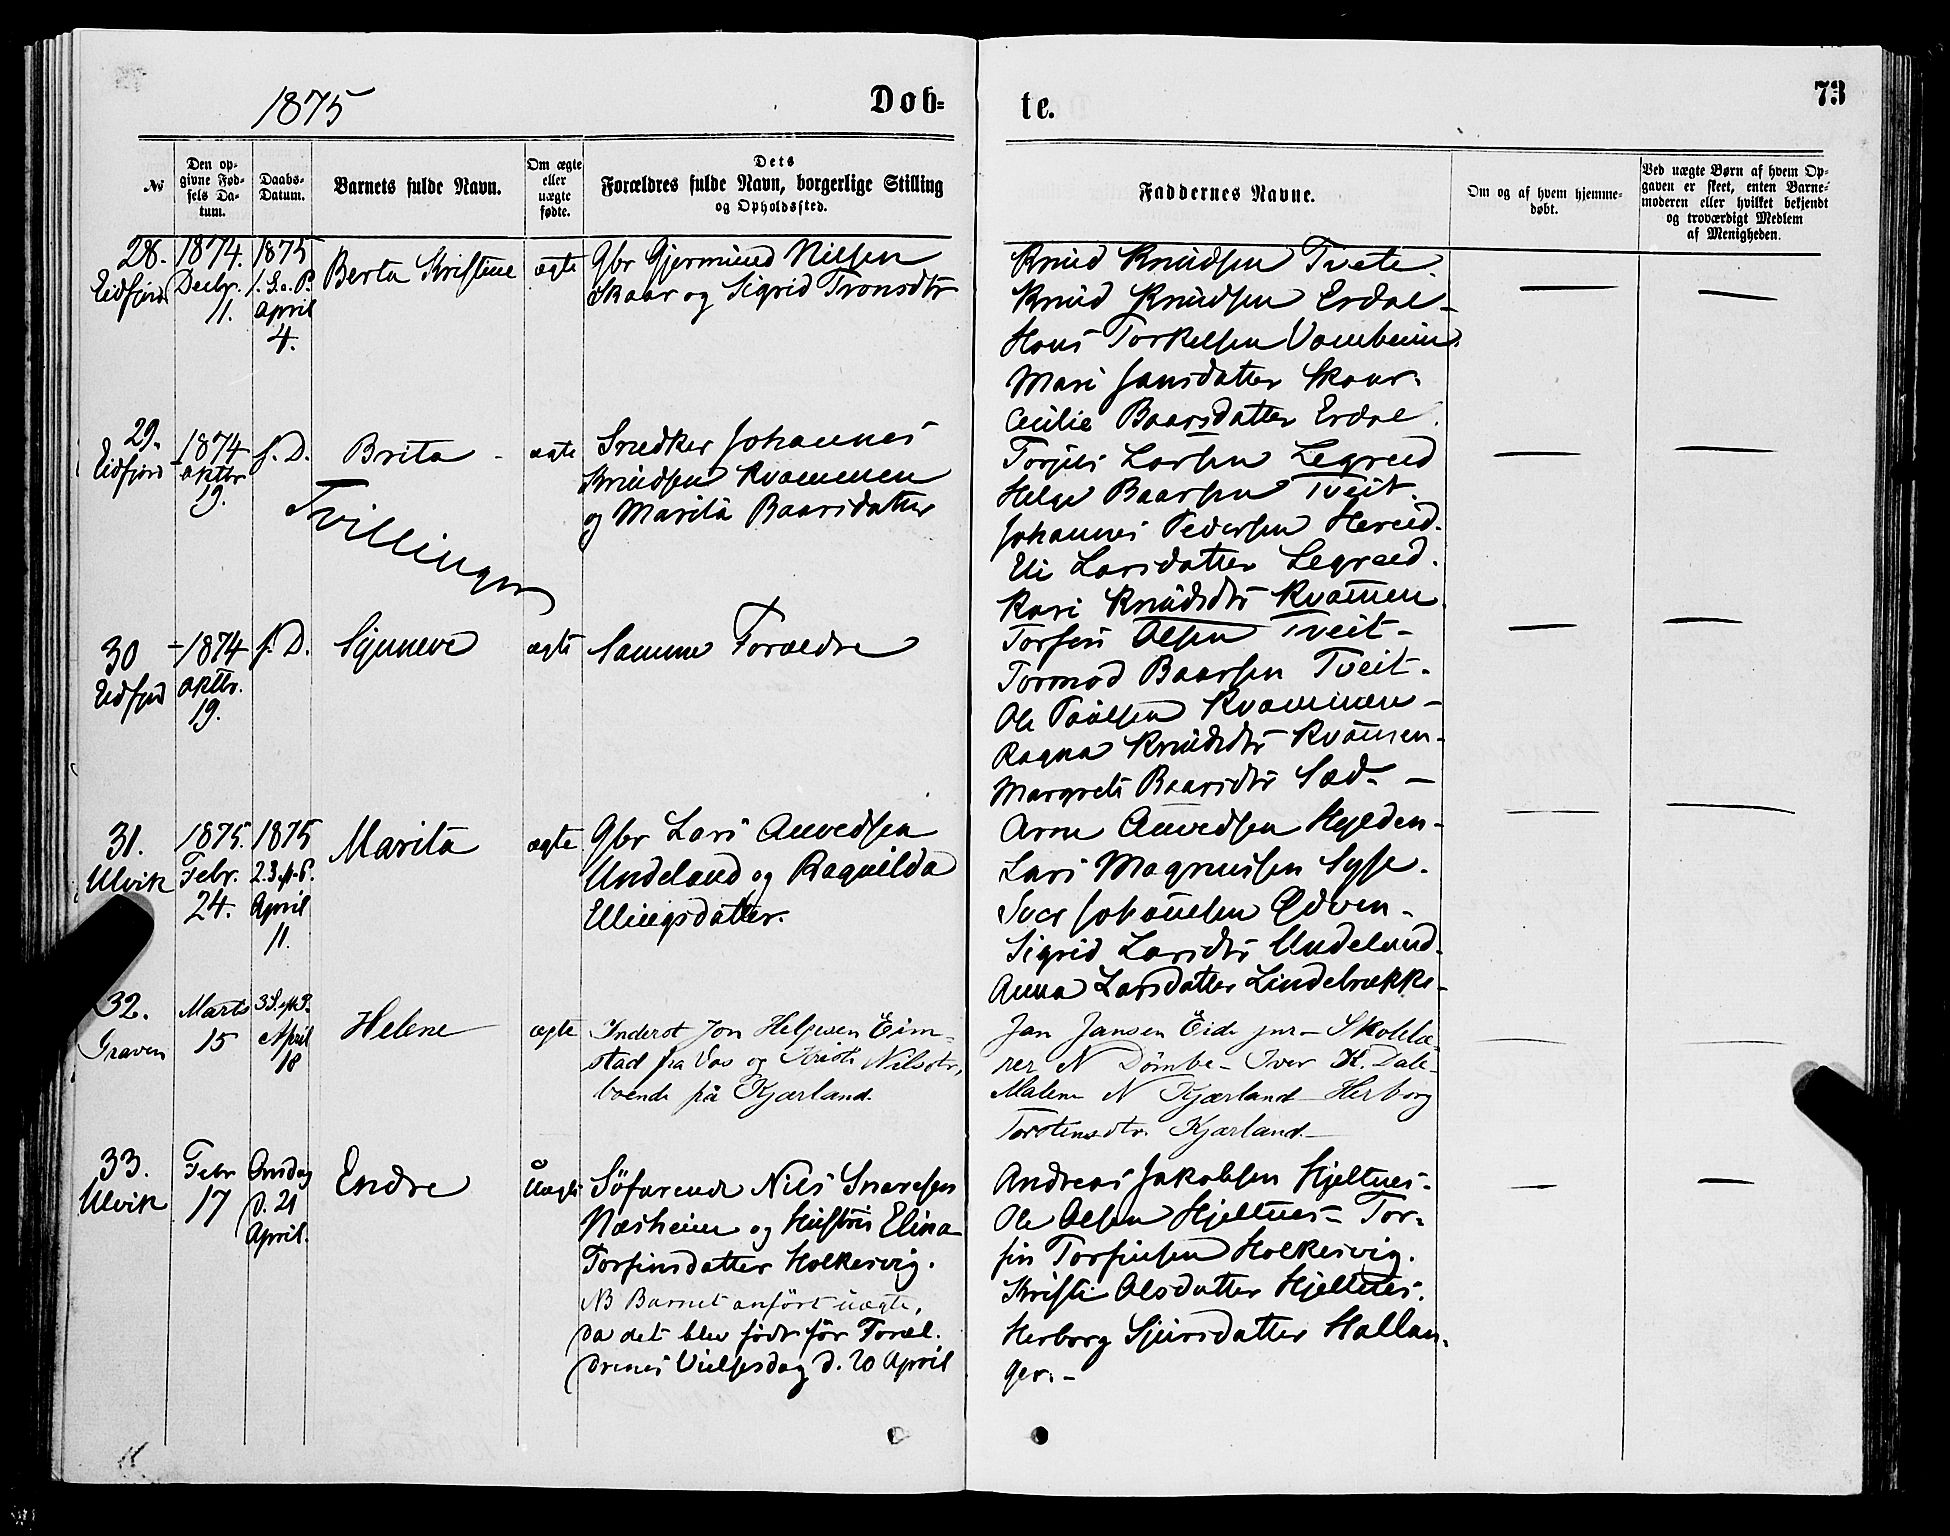 1875
Döb-
te.
73
№
Den op-
givne Fød-
sels Da-
tum.
Daabs-
Datum.
Barnets fulde Navn.
Om ægte
eller
uægte
fødte.
Dets
Forældres fulde Navn, borgerlige Stilling
og Opholdssted.
Faddernes Navne.
Om og af hvem hjemme-
døbt.
Ved uægte Børn af hvem Op-
gaven er skeet, enten Barne-
moderen eller hvilket bekjendt
og troværdigt Medlem
af Menigheden.
28.
Eidfjord
1874.
Decbr.
11.
1875
1. S. e. P.
April
4.
Berta Kristine
ægte
Gbr Gjermund Nilsen
Skaar og Sigrid Tronsdtr
Knud Knudsen Tveit.
Knud Knudsen Erdal-
Hans Torkelsen
Mari Jansdatter Skaar.
Cecilie Baarsdatter Erdal.
29.
Eidfjord
1874
oktbr
19.
s. D.
Brita -
ægte
Snedker Johannes
Knudsen Kvammen
og Marita Baarsdatter
Tvillinger
Torjus Larsen Legreid
Helge Baarsen Tveit.
Johannes Pedersen Hereid.
Eli Larsdatter Legreid.
Kari Knudsdtr Kvam̄en.
30
Eidfjord
- 1874
oktbr.
19.
s. D.
Synneve
ægte
Samme Forældre
Torfin Olsen Tveit-
Tormod Baarsen Tveit-
Ole Paulsen Kvammen-
Ragna Knudsdtr Kvam̄en-
Margrete Baarsdtr Sæd- -
31.
Ulvik
1875.
Febr.
24.
1875
2. S. e. P.
April
11.
Marita
ægte
Gbr Lars Anvedsen
Undeland og Ragnilda
Ellingsdatter.
Arne Anvedsen Hylden-
Lars Magnussen Sysse.
Iver Johan̄esen Ødven-
Sigrid Larsdtr Undeland-
Anna Larsdatter Lindebrække-
32.
Graven
Marts
15
3 S. e. P.
April
18
Helene
ægte
Inderst Jon Helgesen Eim-
stad fra Vos og Kristi Nilsdtr,
boende på Kjærland.
Jan Jansen Eide jnr - Skolelæ-
rer N Dömbe - Iver K. Dale-
Malene N Kjærland - Herborg
Torstensdtr. Kjærland. -
33.
Ulvik
Febr
17
Onsdag
d. 21
April.
Endre
Uægte
Söfarende Nils Snaresen
Næsheim og Hustru Elina
Torfinsdatter Holkesvig.
NB Barnet anfört uægte,
da det blev födt för Foræl-
drenes Vielsesdag d. 20 April
Andreas Jakobsen Hjeltnes-
Ole Olsen Hjeltnes- Tor-
fin Torfinsen Holkesvig.
Kristi Olsdatter Hjeltnes.
Herborg Sjursdatter Hallan-
ger. -